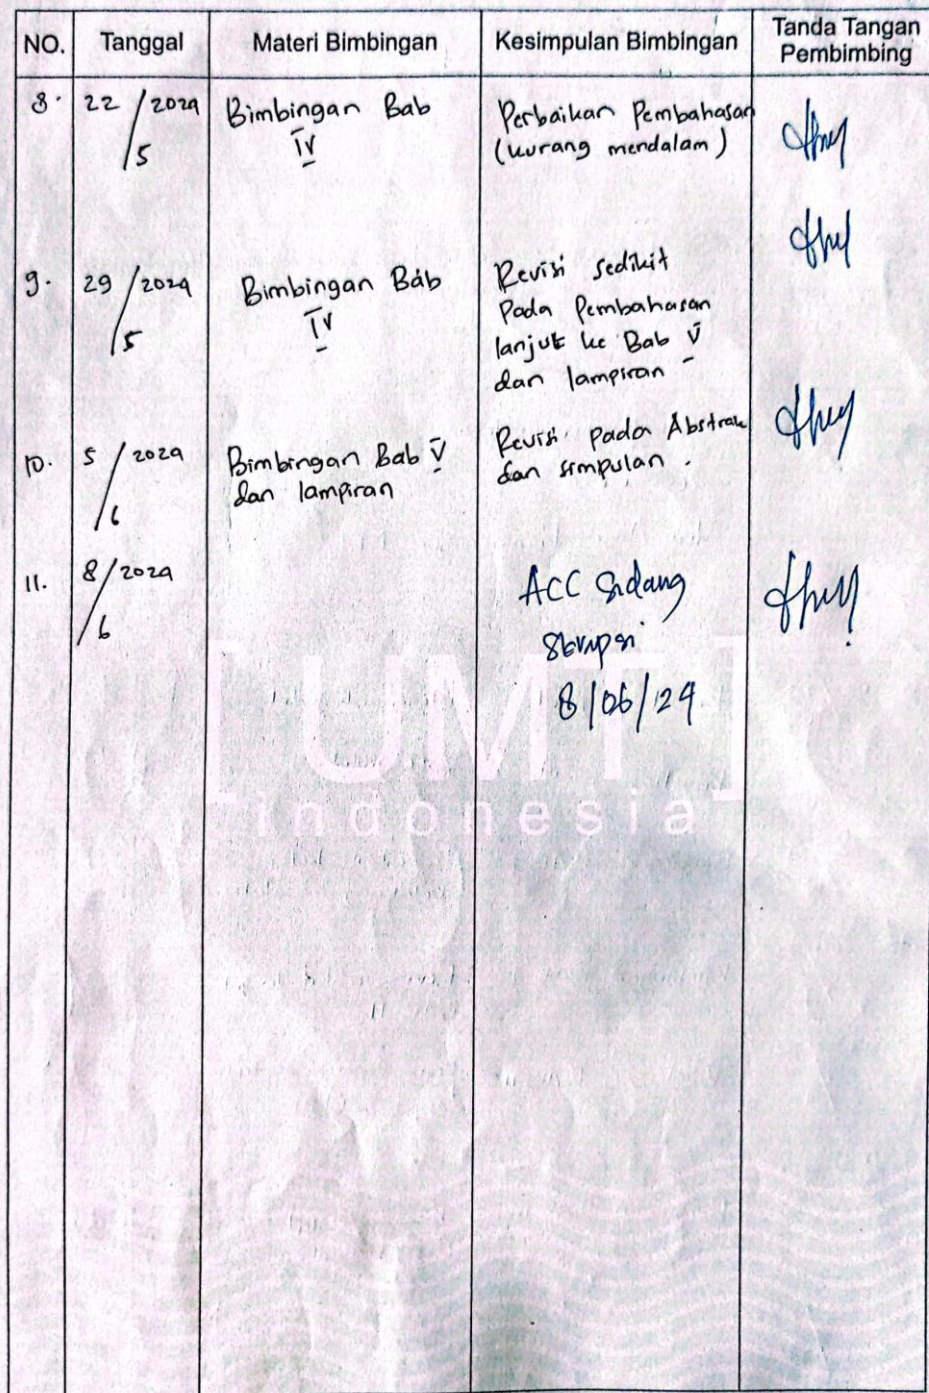 NO. Tanggal Materi Bimbingan Kesimpulan Bimbingan Tanda Tangan
Pembimbing
8. 22/5 2024 Bimbingan Bab Perbaikan Pembahasan
IV (kurang mendalam)
9. 29/5 2024 Bimbingan Bab Revisi sedikit
IV Pada Pembahasan
lanjut ke Bab V
dan lampiran
10. 5/6 2024 Bimbingan Bab V Revisi pada Abstrak
dan lampiran dan simpulan.
11. 8/6 2024 ACC Sidang
Skripsi
8/06/24
[UMT]
indonesia